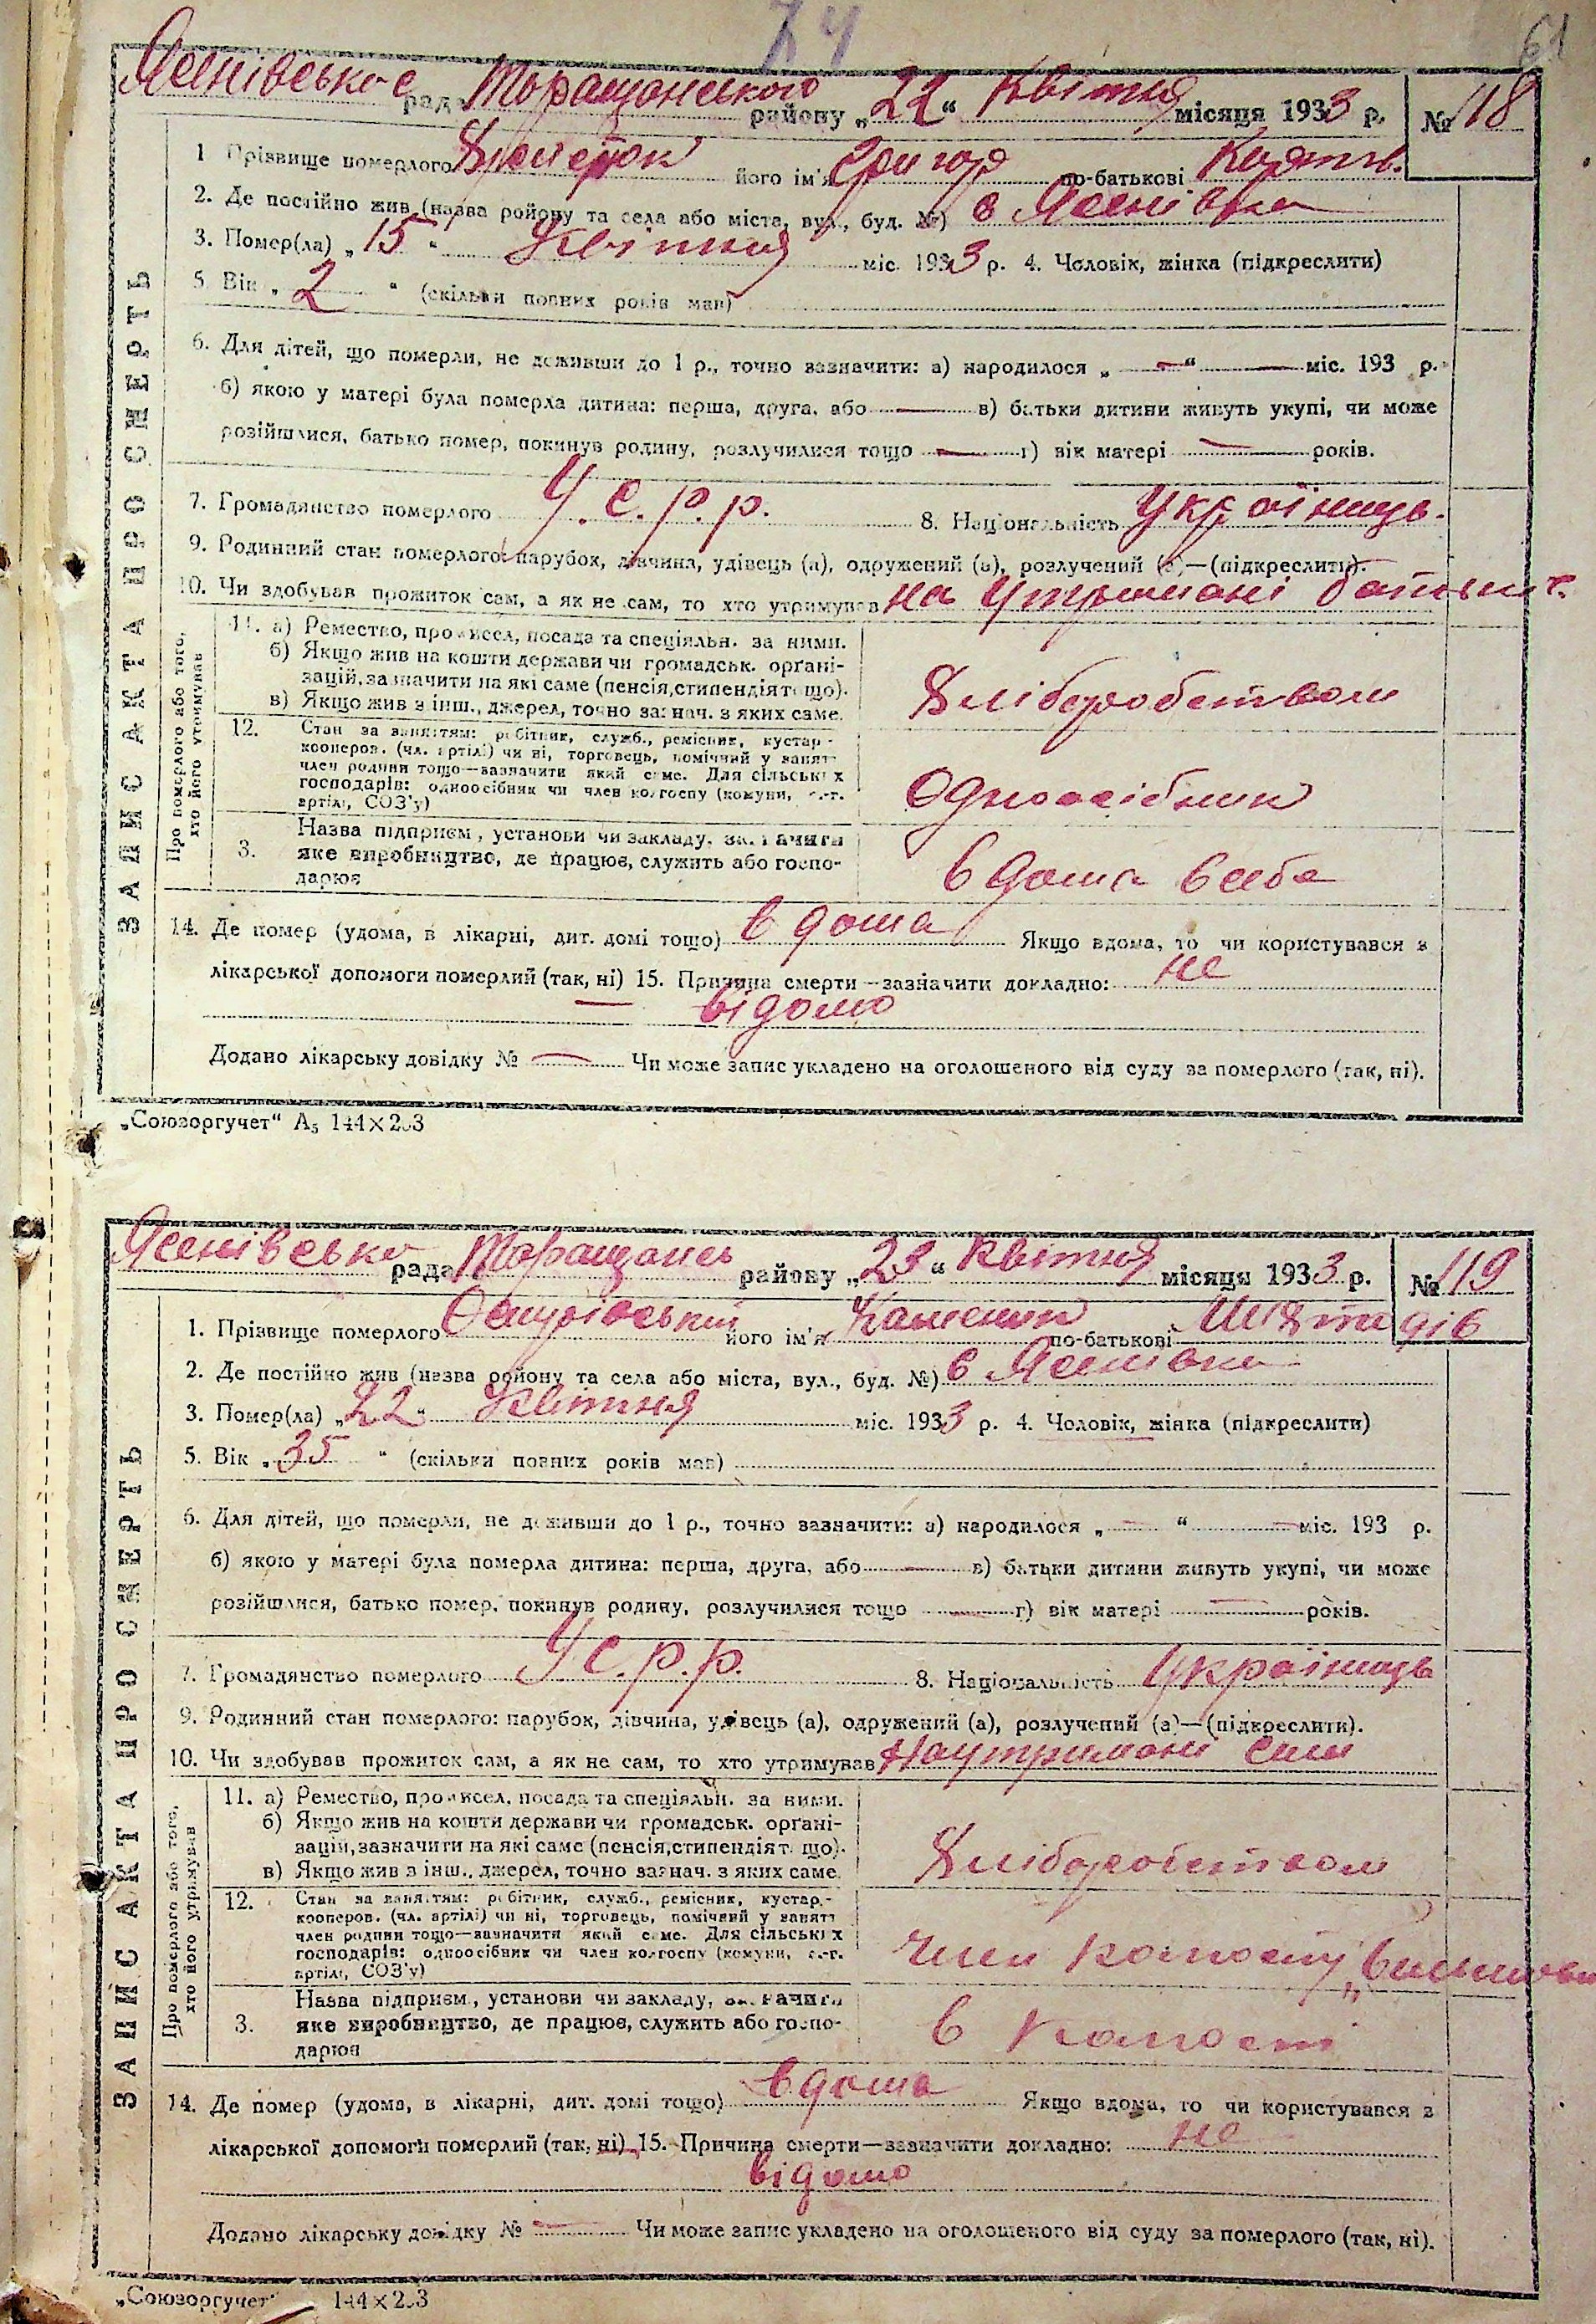 74
61
Ясенівською рада Таращанського району „22“ Квітня місяця 1933 р. № 118
ЗАПИС АКТА ПРО СМЕРТЬ
1 Прізвище померлого його ім'я Григор по-батькові
2. Де постійно жив (назва району та села або міста, вул., буд. №) в Ясенівка
3. Помер(ла) „15“ Квітня міс. 1933 р. 4. Чоловік, жінка (підкреслити)
5. Вік „2“ (скільки повних років мав)
6. Для дітей, що померли, не доживши до 1 р., точно зазначити: а) народилося „—“ — міс. 193 р.
б) якою у матері була померла дитина: перша, друга, або — в) батьки дитини живуть укупі, чи може
розійшлися, батько помер, покинув родину, розлучилися тощо — г) вік матері — років.
7. Громадянство померлого У.С.Р.Р. 8. Національність Українець.
9. Родинний стан померлого: парубок, дівчина, удівець (а), одружений (а), розлучений (а)—(підкреслити).
10. Чи здобував прожиток сам, а як не сам, то хто утримував на утримані
Про померлого або того, хто його утримував
11. а) Ремество, промисел, посада та спеціяльн. за ними.
б) Якщо жив на кошти держави чи громадськ. органі-
зацій, зазначити на які саме (пенсія, стипендія тощо).
в) Якщо жив з інш., джерел, точно зазнач. з яких саме.
Хліборобством
12. Стан за заняттям: робітник, служб., ремісник, кустар-
кооперов. (чл. артілі) чи ні, торговець, помічний у занят
член родини тощо—зазначити який саме. Для сільських
господарів: одноосібник чи член колгоспу (комуни, с.-г.
артілі, СОЗ'у)
Одноосібник
3. Назва підприєм., установи чи закладу, зазначити
яке виробництво, де працює, служить або госпо-
дарює
в дома в себе
14. Де помер (удома, в лікарні, дит. домі тощо) в дома Якщо вдома, то чи користувався з
лікарської допомоги померлий (так, ні) 15. Причина смерти—зазначити докладно: не
— відомо
Додано лікарську довідку № — Чи може запис укладено на оголошеного від суду за померлого (так, ні).
„Союзоргучет“ А5 144×203
Ясенівсько рада Таращанськ району „23“ Квітня місяця 1933 р. № 119
ЗАПИС АКТА ПРО СМЕРТЬ
1. Прізвище померлого його ім'я по-батькові
2. Де постійно жив (назва району та села або міста, вул., буд. №) в Ясенівка
3. Помер(ла) „22“ Квітня міс. 1933 р. 4. Чоловік, жінка (підкреслити)
5. Вік „35“ (скільки повних років мав)
6. Для дітей, що померли, не доживши до 1 р., точно зазначити: а) народилося „—“ — міс. 193 р.
б) якою у матері була померла дитина: перша, друга, або — в) батьки дитини живуть укупі, чи може
розійшлися, батько помер, покинув родину, розлучилися тощо — г) вік матері — років.
7. Громадянство померлого У С.Р.Р. 8. Національність Українець
9. Родинний стан померлого: парубок, дівчина, удівець (а), одружений (а), розлучений (а)—(підкреслити).
10. Чи здобував прожиток сам, а як не сам, то хто утримував На утримані сам
Про померлого або того, хто його утримував
11. а) Ремество, промисел, посада та спеціяльн. за ними.
б) Якщо жив на кошти держави чи громадськ. органі-
зацій, зазначити на які саме (пенсія, стипендія тощо).
в) Якщо жив з інш., джерел, точно зазнач. з яких саме.
Хліборобством
12. Стан за заняттям: робітник, служб., ремісник, кустар.-
кооперов. (чл. артілі) чи ні, торговець, помічний у занятт
член родини тощо—зазначити який саме. Для сільських
господарів: одноосібник чи член колгоспу (комуни, с.-г.
артілі, СОЗ'у)
член колгоспу
3. Назва підприєм., установи чи закладу, зазначити
яке виробництво, де працює, служить або госпо-
дарює
в колгоспі
14. Де помер (удома, в лікарні, дит. домі тощо) в дома Якщо вдома, то чи користувався з
лікарської допомоги померлий (так, ні) 15. Причина смерти—зазначити докладно: не
відомо
Додано лікарську довідку № — Чи може запис укладено на оголошеного від суду за померлого (так, ні).
„Союзоргучет“ 144×203